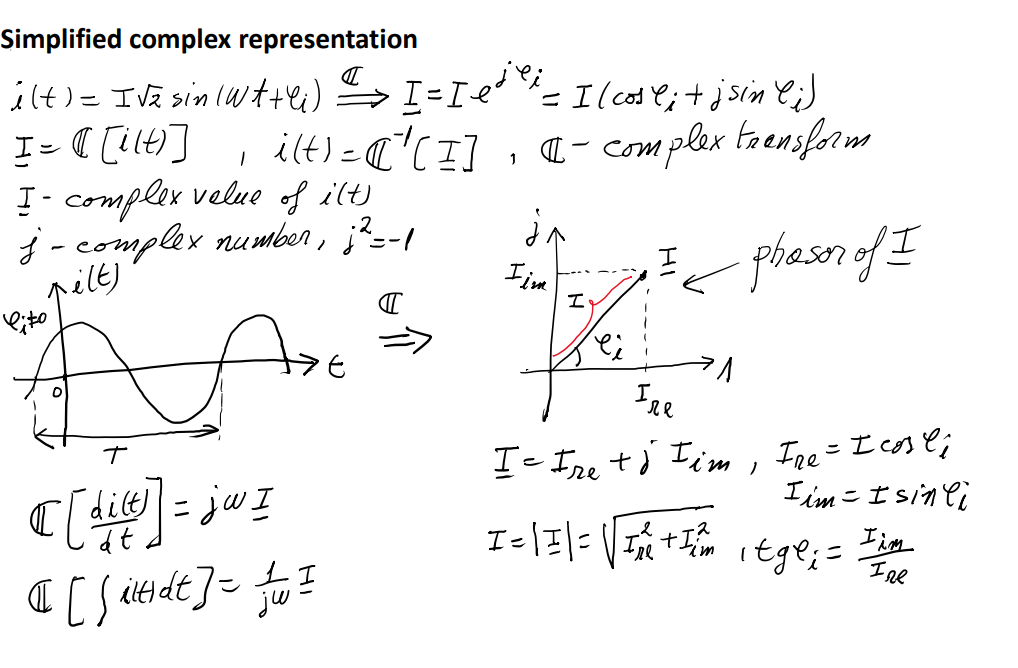 Simplified complex representation
i(t) = I√2 sin(ωt+φᵢ) ⟹ℂ I̲ = I e^{jφᵢ} = I(cos φᵢ + j sin φᵢ)
I̲ = ℂ[i(t)] , i(t) = ℂ⁻¹[I̲] , ℂ - complex transform
I̲ - complex value of i(t)
j - complex number, j² = -1
i(t)
φᵢ≠0
0
t
T
ℂ
⟹
j
I_im
I
I̲
φᵢ
1
I_re
phasor of I̲
I̲ = I_re + j I_im , I_re = I cos φᵢ
I_im = I sin φᵢ
ℂ[di(t)/dt] = jω I̲
I = |I̲| = √(I_re² + I_im²) , tg φᵢ = I_im/I_re
ℂ[∫ i(t)dt] = 1/jω I̲